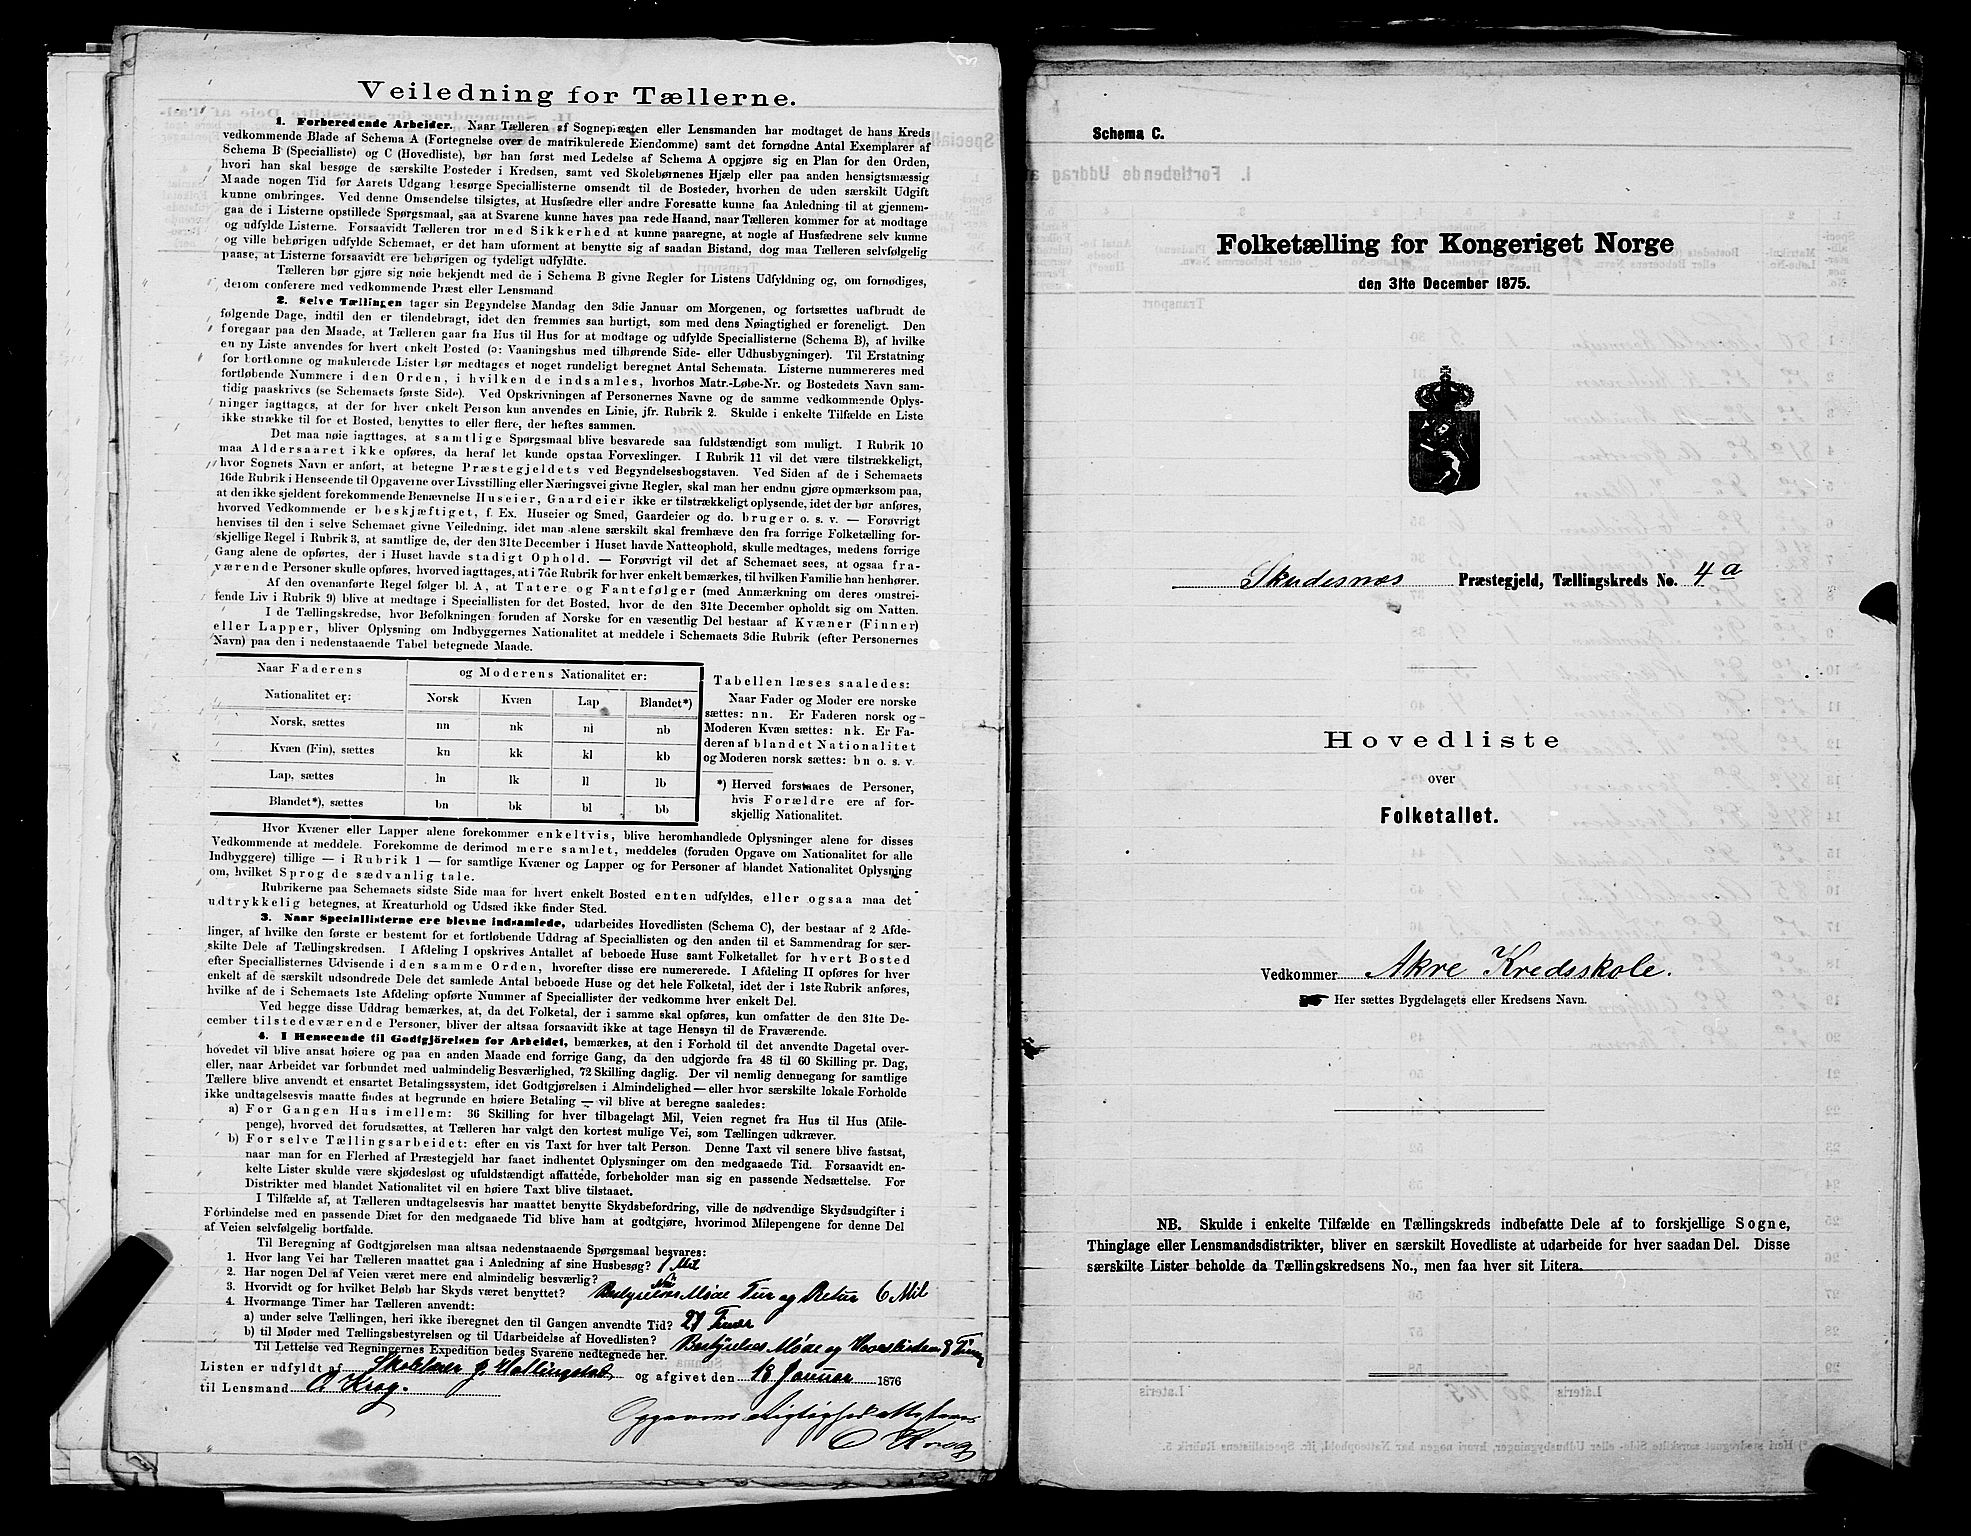 Veiledning for Tællerne.
1. Forberedende Arbeider. Naar Tælleren af Sognepræsten eller Lensmanden har modtaget de hans Kreds
vedkommende Blade af Schema A (Fortegnelse over de matrikulerede Eiendomme) samt det fornødne Antal Exemplarer af
Schema B (Specialliste) og C (Hovedliste), bør han først med Ledelse af Schema A opgjøre sig en Plan for den Orden,
hvori han skal besøge de særskilte Bosteder i Kredsen, samt ved Skolebørnenes Hjælp eller paa anden hensigtsmæssig
Maade nogen Tid før Aarets Udgang besørge Speciallisterne omsendt til de Bosteder, hvorhen de uden særskilt Udgift
kunne ombringes. Ved denne Omsendelse tilsigtes, at Husfædre eller andre Foresatte kunne faa Anledning til at gjennem-
gaa de i Listerne opstillede Spørgsmaal, saa at Svarene kunne haves paa rede Haand, naar Tælleren kommer for at modtage
og udfylde Listerne. Forsaavidt Tælleren tror med Sikkerhed at kunne paaregne, at nogle af Husfædrene selv kunne
og ville behørigen udfylde Schemaet, er det ham uforment at benytte sig af saadan Bistand, dog maa Tælleren selvfølgelig
paase, at Listerne forsaavidt ere behørigen og tydeligt udfyldte.
Tælleren bør gjøre sig nøie bekjendt med de i Schema B givne Regler for Listens Udfyldning og, om fornødiges,
derom conferere med vedkommende Præst eller Lensmand
2. Selve Tællingen tager sin Begyndelse Mandag den 3die Januar om Morgenen, og fortsættes uafbrudt de
følgende Dage, indtil den er tilendebragt, idet den fremmes saa hurtigt, som med dens Nøiagtighed er foreneligt. Den
foregaar paa den Maade, at Tælleren gaar fra Hus til Hus for at modtage og udfylde Speciallisterne (Schema B), af hvilke
en ny Liste anvendes for hvert enkelt Bosted (ɔ: Vaaningshus med tilhørende Side- eller Udhusbygninger). Til Erstatning
for bortkomne og makulerede Lister bør medtages et noget rundeligt beregnet Antal Schemata. Listerne nummereres med
fortløbende Nummere i den Orden, i hvilken de indsamles, hvorhos Matr.-Løbe-Nr. og Bostedets Navn sam-
tidig paaskrives (se Schemaets første Side). Ved Opskrivningen af Personernes Navne og de samme vedkommende Oplys-
ninger iagttages, at der for hver enkelt Person kun anvendes en Linie, jfr. Rubrik 2. Skulde i enkelte Tilfælde en Liste
ikke strække til for et Bosted, benyttes to eller flere, der heftes sammen.
Det maa nøie iagttages, at samtlige Spørgsmaal blive besvarede saa fuldstændigt som muligt. I Rubrik 10
maa Aldersaaret ikke opføres, da heraf let kunde opstaa Forvexlinger. I Rubrik 11 vil det være tilstrækkeligt,
hvor Sognets Navn er anført, at betegne Præstegjeldets ved Begyndelsesbogstaven. Ved Siden af de i Schemaets
16de Rubrik i Henseende til Opgaverne over Livsstilling eller Næringsvei givne Regler, skal man her endnu gjøre opmærksom paa,
at den ikke sjeldent forekommende Benævnelse Huseier, Gaardeier ikke er tilstrækkeligt oplysende, idet der bør anføres,
hvorved Vedkommende er beskjæftiget, f. Ex. Huseier og Smed, Gaardeier og do. bruger o. s. v. — Forøvrigt
henvises til den i selve Schemaet givne Veiledning, idet man alene særskilt skal fremhæve den fra forrige Folketælling for-
skjellige Regel i Rubrik 3, at samtlige de, der den 31te December i Huset havde Natteophold, skulle medtages, medens forrige
Gang alene de opførtes, der i Huset havde stadigt Ophold. — Forøvrigt vil det af Schemaet sees, at ogsaa fra-
værende Personer skulle opføres, hvorved iagttages, at i 7de Rubrik for hver enkelt bemærkes, til hvilken Familie han henhører.
Af den ovenanførte Regel følger bl. A, at Tatere og Fantefølger (med Anmærkning om deres omstrei-
fende Liv i Rubrik 9) blive at medtage i Speciallisten for det Bosted, hvor de den 31te December opholdt sig om Natten.
I de Tællingskredse, hvor Befolkningen foruden af Norske for en væsentlig Del bestaar af Kvæner (Finner)
eller Lapper, bliver Oplysning om Indbyggernes Nationalitet at meddele i Schemaets 3die Rubrik (efter Personernes
Navn) paa den i nedenstaaende Tabel betegnede Maade.
Naar Faderens og Moderens Nationalitet er:
Nationalitet er: Norsk Kvæn Lap Blandet*)
Norsk, sættes nn nk nl nb
Kvæn (Fin), sættes kn kk kl kb
Lap, sættes ln lk ll lb
Blandet*), sættes bn bk bl bb
Tabellen læses saaledes:
Naar Fader og Moder ere norske
sættes: nn. Er Faderen norsk og
Moderen Kvæn sættes: nk. Er Fa-
deren af blandet Nationalitet
og Moderen norsk sættes: bn o. s. v.
*) Herved forstaaes de Personer,
hvis Forældre ere af for-
skjellig Nationalitet.
Hvor Kvæner eller Lapper alene forekommer enkeltvis, blive heromhandlede Oplysninger alene for disses
Vedkommende at meddele. Forekomme de derimod mere samlet, meddeles (foruden Opgave om Nationalitet for alle
Indbyggere) tillige — i Rubrik 1 — for samtlige Kvæner og Lapper og for Personer af blandet Nationalitet Oplysning
om, hvilket Sprog de sædvanlig tale.
Rubrikerne paa Schemaets sidste Side maa for hvert enkelt Bosted enten udfyldes, eller ogsaa maa det
udtrykkelig betegnes, at Kreaturhold og Udsæd ikke finder Sted.
3. Naar Speciallisterne ere blevne indsamlede, udarbeides Hovedlisten (Schema C), der bestaar af 2 Afde-
linger, af hvilke den første er bestemt for et fortløbende Uddrag af Speciallisten og den anden til et Sammendrag for sær-
skilte Dele af Tællingskredsen. I Afdeling I opskrives Antallet af beboede Huse samt Folketallet for hvert Bosted
efter Speciallisternes Udvisende i den samme Orden, hvorefter disse ere numererede. I Afdeling II opføres for hver
enkelt af de særskilt udsondrede Dele det samlede Antal beboede Huse og det hele Folketal, idet der i 1ste Rubrik anføres,
hvilke af de i Schemaets 1ste Afdeling opførte Nummer af Speciallister der vedkomme hver enkelt Del.
Ved begge disse Uddrag bemærkes, at, da det Folketal, der i samme skal opføres, kun omfatter de den 31te De-
cember tilstedeværende Personer, bliver der altsaa forsaavidt ikke at tage Hensyn til de Fraværende.
4. I Henseende til Godtgjörelsen for Arbeidet, bemærkes, at den i Forhold til det anvendte Dagetal over-
hovedet vil blive ansat høiere og paa en anden Maade end forrige Gang, da den udgjorde fra 48 til 60 Skilling pr. Dag,
eller, naar Arbeidet var forbundet med ualmindelig Besværlighed, 72 Skilling daglig. Der vil nemlig dennegang for samtlige
Tællere blive anvendt et ensartet Betalingssystem, idet Godtgjørelsen i Almindelighed — eller hvor særskilte lokale Forholde
ikke undtagelsesvis maatte findes at begrunde en høiere Betaling — vil blive at beregne saaledes:
a) For Gangen Hus imellem: 36 Skilling for hver tilbagelagt Mil, Veien regnet fra Hus til Hus (Mile-
penge), hvorved det forudsættes, at Tælleren har valgt den kortest mulige Vei, som Tællingen udkræver.
b) For selve Tællingsarbeidet: efter en vis Taxt for hver talt Person. Denne Taxt vil senere blive fastsat,
naar man for en Flerhed af Præstegjeld har faaet indhentet Oplysninger om den medgaaede Tid. Forsaavidt en-
kelte Lister skulde være skjødesløst og ufuldstændigt affattede, forbeholder man sig en passende Nedsættelse. For
Distrikter med blandet Nationalitet vil en høiere Taxt blive tilstaaet.
I Tilfælde af, at Tælleren undtagelsesvis har maattet benytte Skydsbefordring, ville de nødvendige Skydsudgifter i
Forbindelse med en passende Diæt for den medgaaede Tid blive ham at godtgjøre, hvorimod Milepengene for denne Del
af Veien selvfølgelig bortfalde.
Til Beregning af Godtgjørelsen maa altsaa nedenstaaende Spørgsmaal besvares:
1. Hvor lang Vei har Tælleren maattet gaa i Anledning af sine Husbesøg? 1 Mil
2. Har nogen Del af Veien været mere end almindelig besværlig? Nei
3. Hvorvidt og for hvilket Beløb har Skyds været benyttet? Bestyrelses Møde Tur og Retur 6 Mil
4. Hvormange Timer har Tælleren anvendt:
a) under selve Tællingen, heri ikke iberegnet den til Gangen anvendte Tid? 27 Timer
b) til Møder med Tællingsbestyrelsen og til Udarbeidelse af Hovedlisten? Bestyrelses Møde og Hovedlisten 8 Timer
Til Lettelse ved Regningernes Expedition bedes Svarene nedtegnede her.
Listen er udfyldt af Skolelærer J. Hallingstad og afgivet den 18 Januar 1876
til Lensmand O Krog.
Opgavens Rigtighed attesteres
O Krog
Schema C.
Folketælling for Kongeriget Norge
den 31te December 1875.
Skudesnæs Præstegjeld, Tællingskreds No. 4a
Hovedliste
over
Folketallet.
Vedkommer Akre Kredsskole.
Her sættes Bygdelagets eller Kredsens Navn.
NB. Skulde i enkelte Tilfælde en Tællingskreds indbefatte Dele af to forskjellige Sogne,
Thinglage eller Lensmandsdistrikter, bliver en særskilt Hovedliste at udarbeide for hver saadan Del. Disse
særskilte Lister beholde da Tællingskredsens No., men faa hver sit Litera.